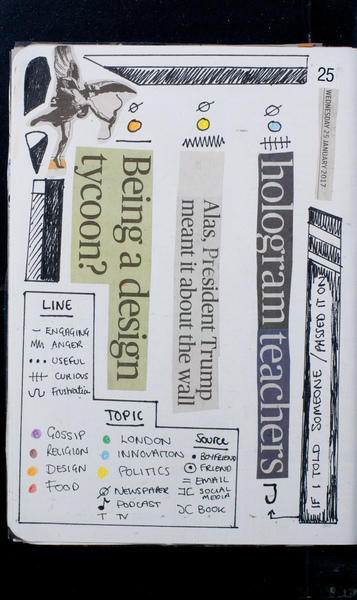 25
WEDNESDAY 25 JANUARY 2017
hologram teachers
Alas, President Trump
meant it about the wall
Being a design
tycoon?
IF I TOLD SOMEONE / PASSED IT ON
LINE
ENGAGING
ANGER
USEFUL
CURIOUS
Frustration
TOPIC
GOSSIP
RELIGION
DESIGN
FOOD
LONDON
INNOVATION
POLITICS
NEWSPAPER
PODCAST
T TV
SOURCE
BOYFRIEND
FRIEND
EMAIL
SOCIAL
MEDIA
BOOK